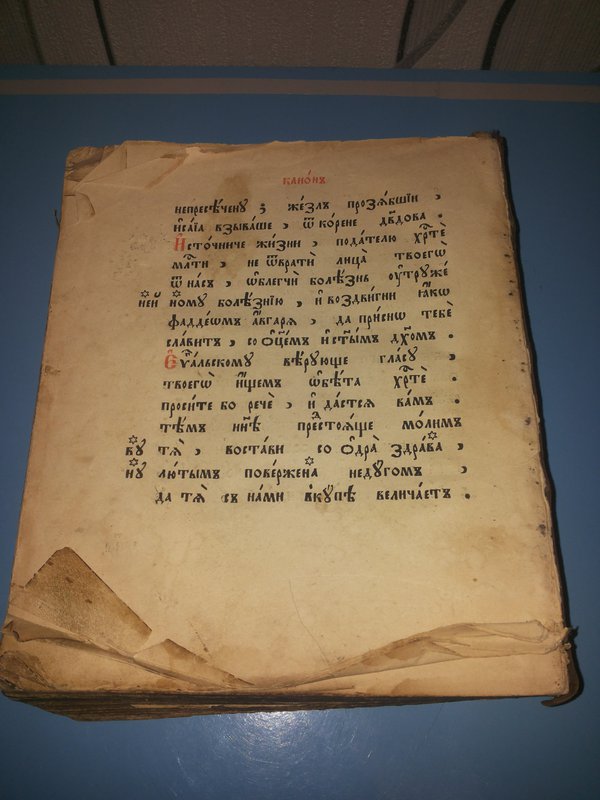 канѡ́нъ
непресѣ́чену з҃ же́злъ прозѧ́бшїи ,
и҆са́їа взыва́ше , ѿ ко́рене дв҃дова .
И҆сто́чниче жи́зни , пода́телю хрⷭ҇тѐ
млⷭ҇ти , не ѿвратѝ лица̀ твоегѡ̀
ѿ на́съ , ѡ҆блегчѝ болѣ́знь ᲂу҆труже́
не́й но́му болѣ́знїю , и҆ воздви́гни ꙗ҆́кѡ
фадде́ѡмъ а҆́vгарѧ , да при́снѡ тебѐ
сла́витъ , со ѻ҆ц҃е́мъ и҆ ст҃ы́мъ дх҃омъ .
Е҆ѵⷢ҇альскому вѣ́рующе гла́су ,
твоегѡ̀ и҆́щемъ ѡ҆бѣ́та хрⷭ҇тѐ .
проси́те бо речѐ , и҆ да́стсѧ ва́мъ .
тѣ́мъ нн҃ѣ предстоѧ́ще мо́лимъ
ву тѧ̀ , воста́ви со ѻ҆дра̀ здра́ва ,
ну лю́тымъ пове́ржена недугомъ ,
да тѧ̀ съ на́ми вкꙋ́пѣ велича́етъ .